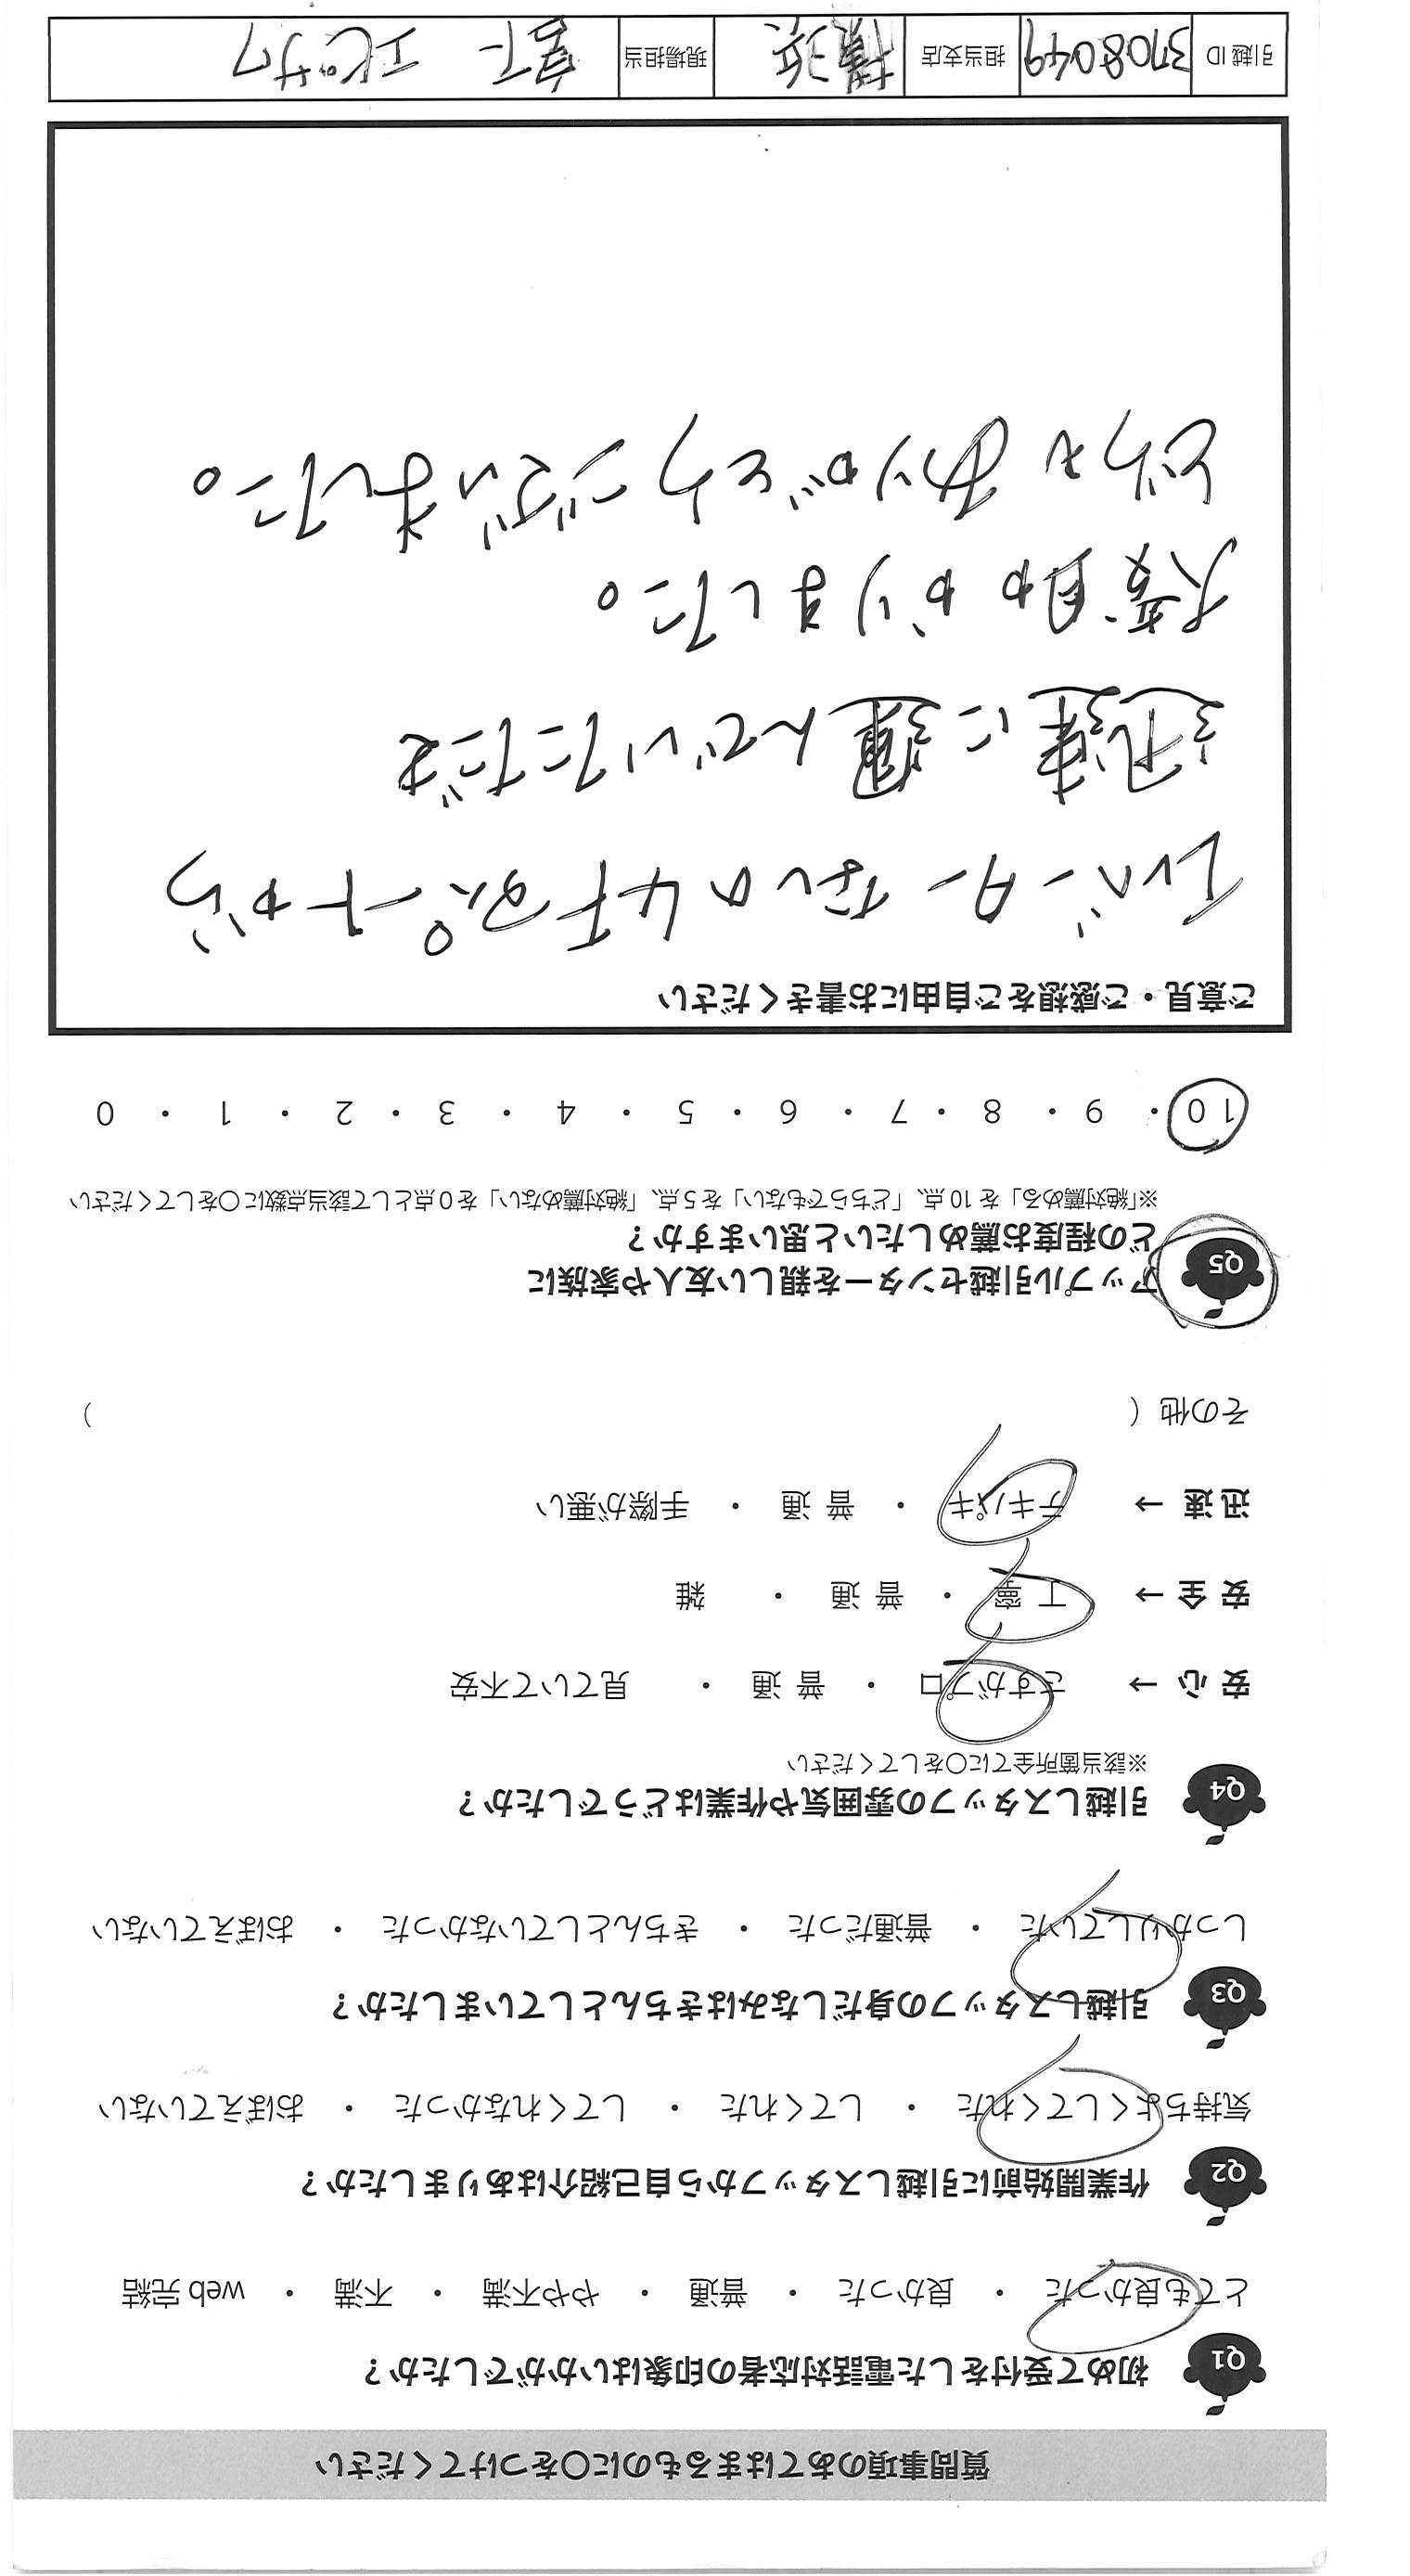 質問事項のあてはまるものに〇をつけてください
Q1 初めて受付をした電話対応者の印象はいかがでしたか？
とても良かった ・ 良かった ・ 普通 ・ やや不満 ・ 不満 ・ web 完結
Q2 作業開始前に引越しスタッフから自己紹介はありましたか？
気持ちよくしてくれた ・ してくれた ・ してくれなかった ・ おぼえていない
Q3 引越しスタッフの身だしなみはきちんとしていましたか？
しっかりしていた ・ 普通だった ・ きちんとしていなかった ・ おぼえていない
Q4 引越しスタッフの雰囲気や作業はどうでしたか？
※該当箇所全てに〇をしてください
安 心 → さすがプロ ・ 普 通 ・ 見ていて不安
安 全 → 丁 寧 ・ 普 通 ・ 雑
迅 速 → テキパキ ・ 普 通 ・ 手際が悪い
その他（ ）
Q5 アップル引越センターを親しい友人や家族に
どの程度お薦めしたいと思いますか？
※「絶対薦める」を 10 点、「どちらでもない」を 5 点、「絶対薦めない」を 0 点として該当点数に〇をしてください
10 ・ 9 ・ 8 ・ 7 ・ 6 ・ 5 ・ 4 ・ 3 ・ 2 ・ 1 ・ 0
ご意見・ご感想をご自由にお書きください
エレベーターなしの4Fアパートから
迅速に運んでいただき
大変助かりました。
どうも ありがとうございました。
引越 ID 3708049 担当支店 横浜 現場担当 宮下 エビサワ